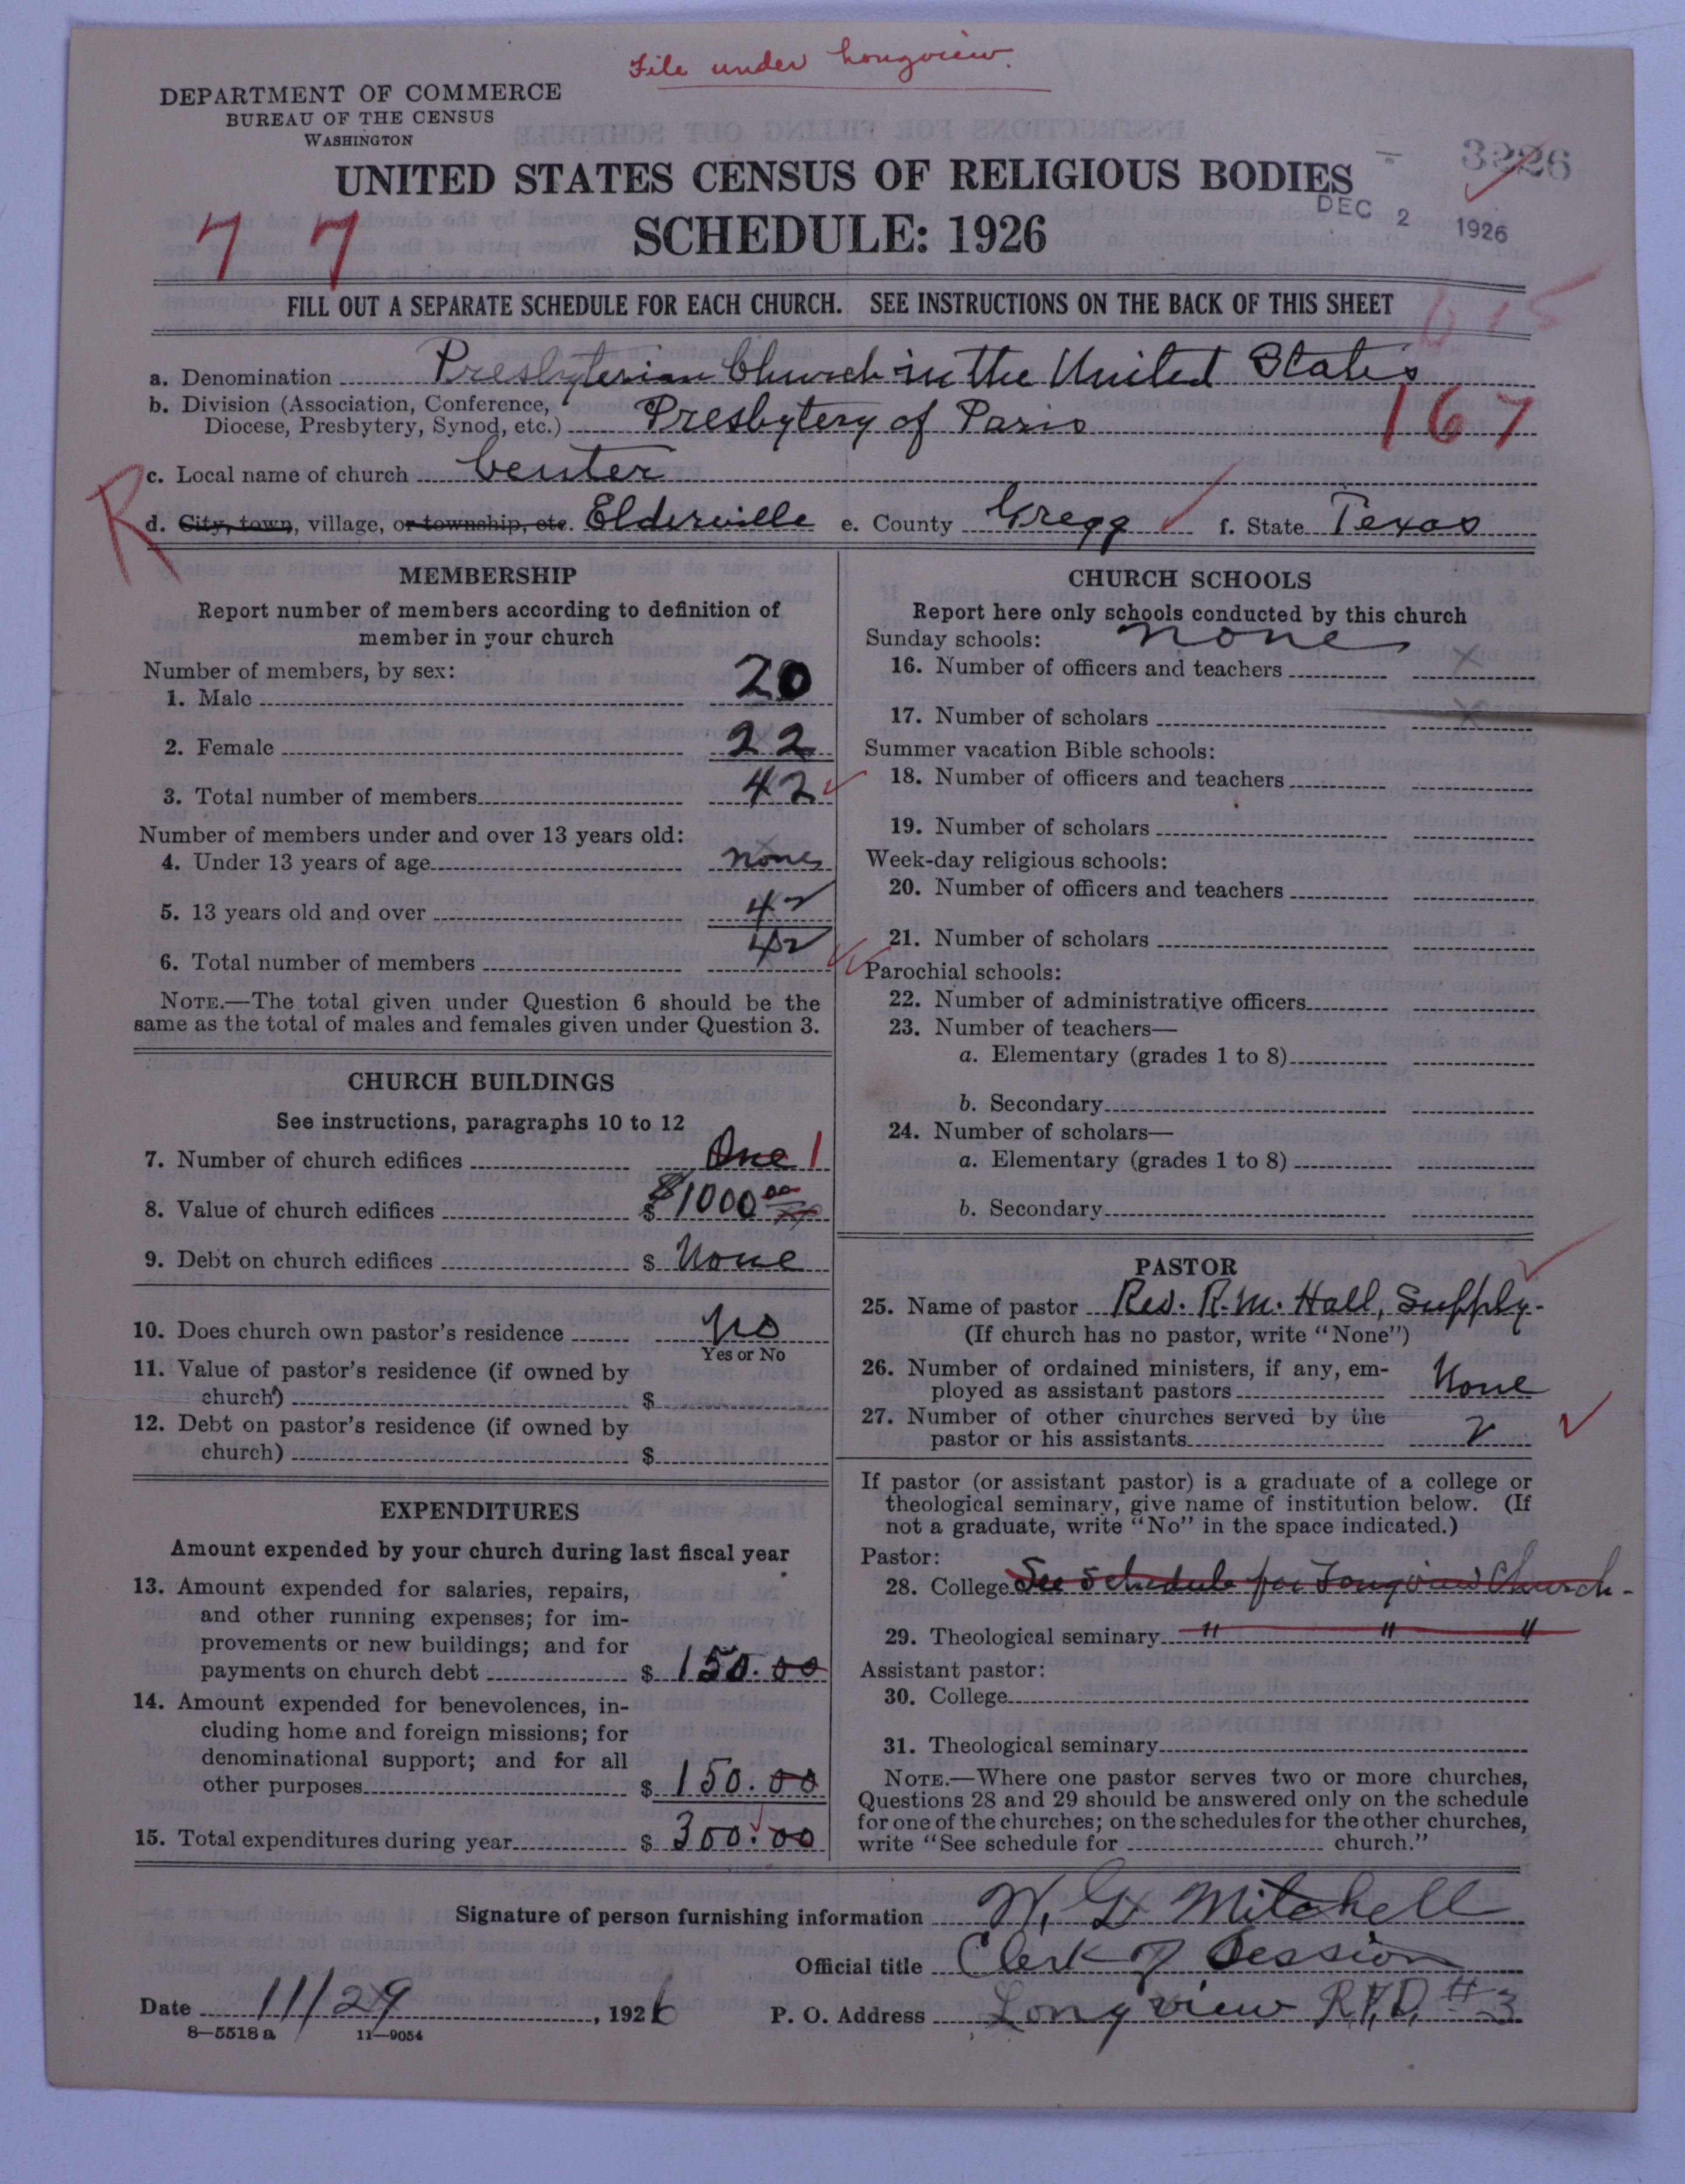 File under Longview.
DEPARTMENT OF COMMERCE
BUREAU OF THE CENSUS
WASHINGTON
3226
UNITED STATES CENSUS OF RELIGIOUS BODIES
DEC 2 1926
SCHEDULE: 1926
7 7
FILL OUT A SEPARATE SCHEDULE FOR EACH CHURCH. SEE INSTRUCTIONS ON THE BACK OF THIS SHEET
a. Denomination Presbyterian Church in the United States
b. Division (Association, Conference,
Diocese, Presbytery, Synod, etc.) Presbytery of Paris
167
c. Local name of church Center
R
d. City, town, village, or township, etc. Elderville e. County Gregg f. State Texas
MEMBERSHIP
Report number of members according to definition of
member in your church
Number of members, by sex:
1. Male 20
2. Female 22
3. Total number of members 42
Number of members under and over 13 years old:
4. Under 13 years of age none
5. 13 years old and over 42
6. Total number of members 42
NOTE.—The total given under Question 6 should be the
same as the total of males and females given under Question 3.
CHURCH BUILDINGS
See instructions, paragraphs 10 to 12
7. Number of church edifices One 1
8. Value of church edifices $ $1000 00
9. Debt on church edifices $ None
10. Does church own pastor's residence No
Yes or No
11. Value of pastor's residence (if owned by
church) $
12. Debt on pastor's residence (if owned by
church) $
EXPENDITURES
Amount expended by your church during last fiscal year
13. Amount expended for salaries, repairs,
and other running expenses; for im-
provements or new buildings; and for
payments on church debt $ 150.00
14. Amount expended for benevolences, in-
cluding home and foreign missions; for
denominational support; and for all
other purposes $ 150.00
15. Total expenditures during year $ 300.00
CHURCH SCHOOLS
Report here only schools conducted by this church
Sunday schools: none
16. Number of officers and teachers
17. Number of scholars
Summer vacation Bible schools:
18. Number of officers and teachers
19. Number of scholars
Week-day religious schools:
20. Number of officers and teachers
21. Number of scholars
Parochial schools:
22. Number of administrative officers
23. Number of teachers—
a. Elementary (grades 1 to 8)
b. Secondary
24. Number of scholars—
a. Elementary (grades 1 to 8)
b. Secondary
PASTOR
25. Name of pastor Rev. R. M. Hall, Supply-
(If church has no pastor, write "None")
26. Number of ordained ministers, if any, em-
ployed as assistant pastors None
27. Number of other churches served by the
pastor or his assistants 2
If pastor (or assistant pastor) is a graduate of a college or
theological seminary, give name of institution below. (If
not a graduate, write "No" in the space indicated.)
Pastor:
28. College See Schedule for Longview Church-
29. Theological seminary " " "
Assistant pastor:
30. College
31. Theological seminary
NOTE.—Where one pastor serves two or more churches,
Questions 28 and 29 should be answered only on the schedule
for one of the churches; on the schedules for the other churches,
write "See schedule for church."
Signature of person furnishing information W. G. Mitchell
Official title Clerk of Session
Date 11/29, 1926 P. O. Address Longview R.F.D. #3
8-5518a 11-9054